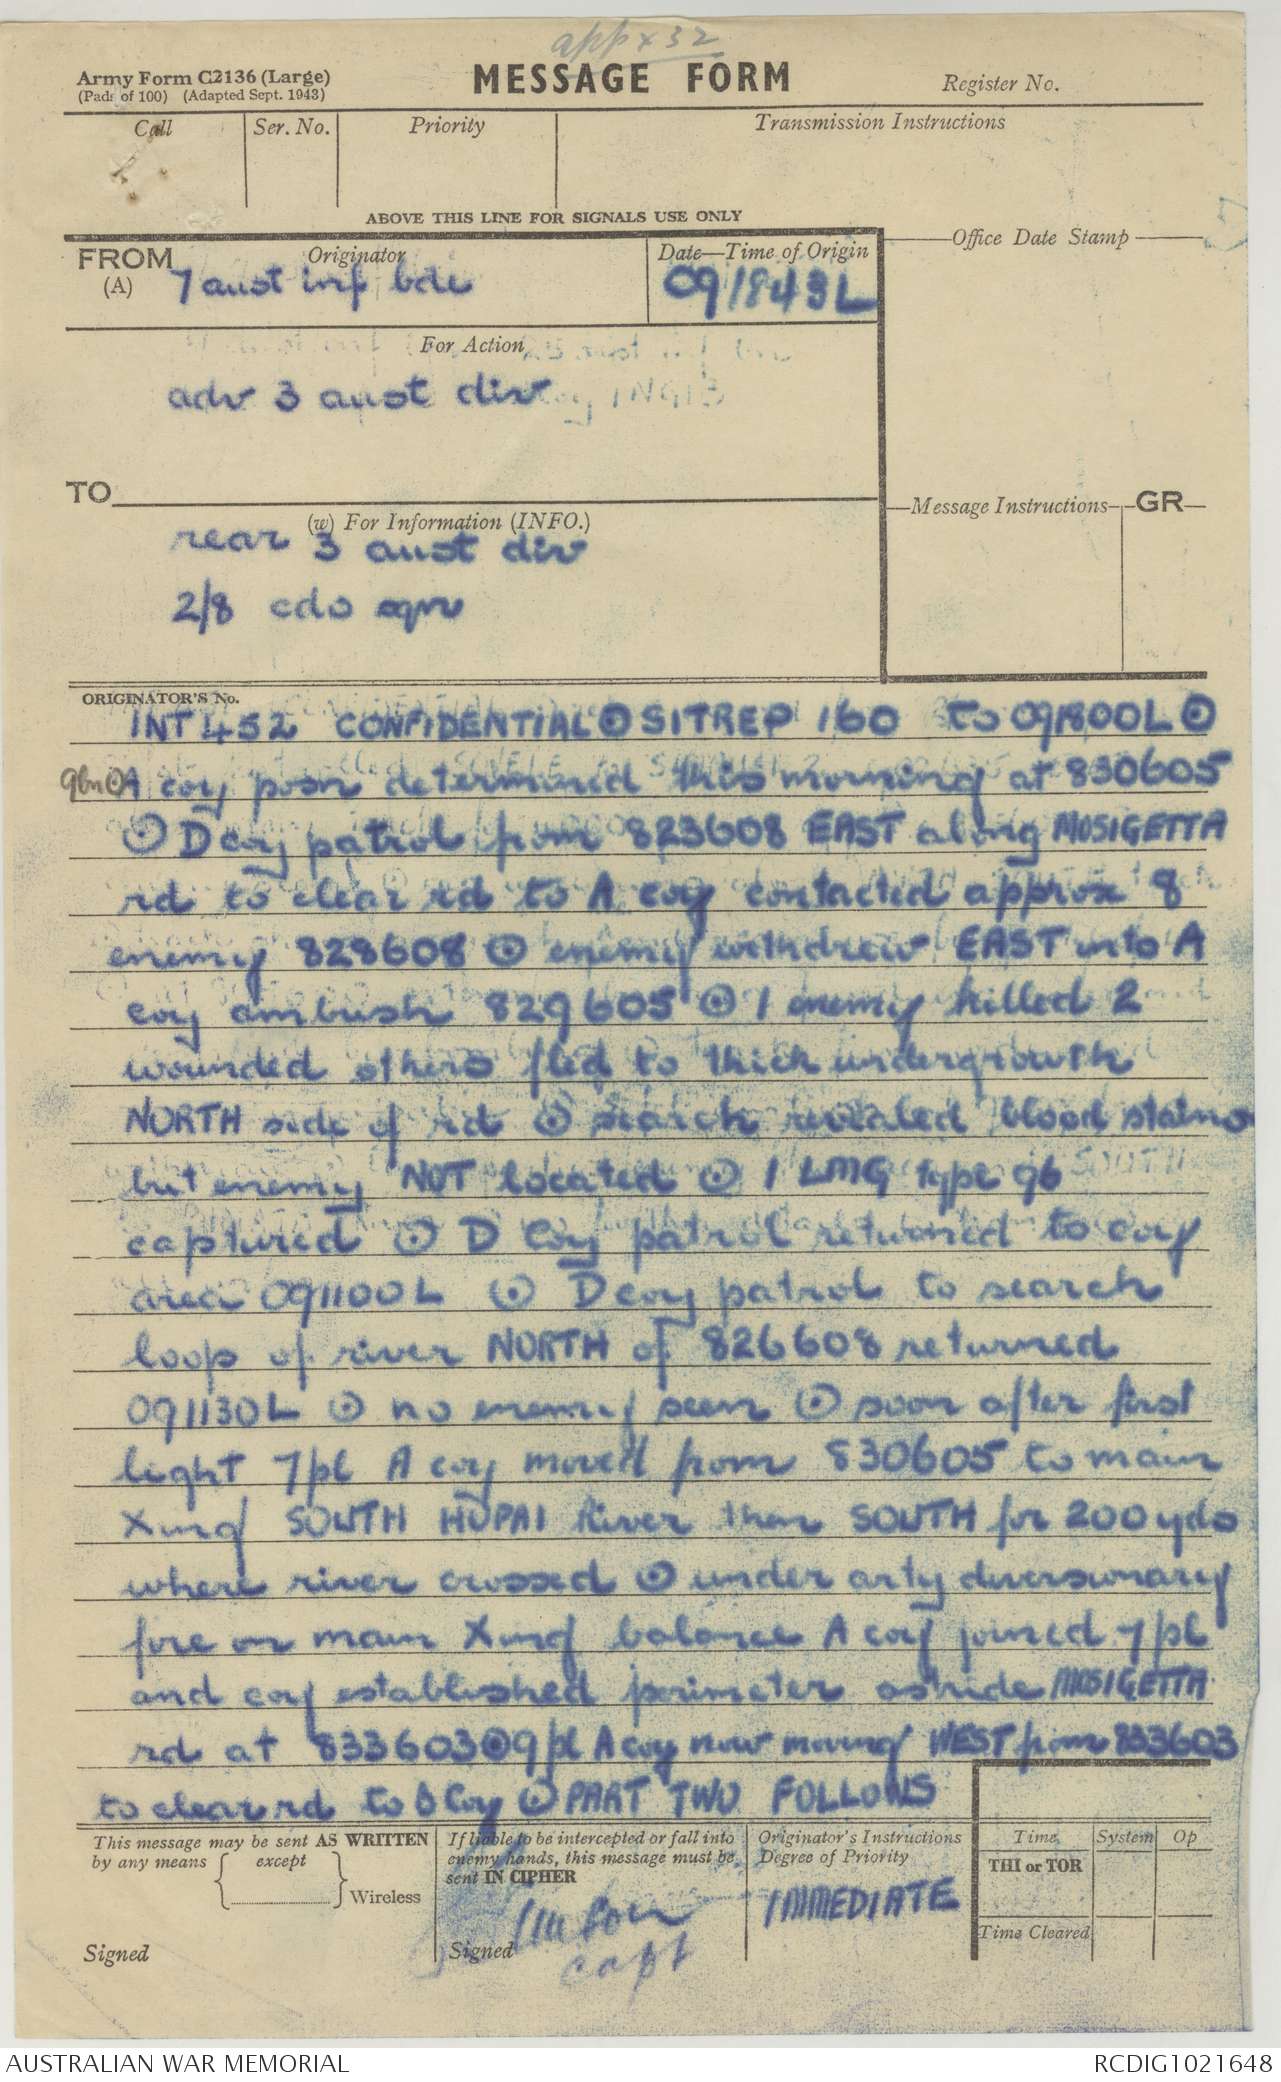 appx 32
Army Form C2136 (Large)
(Pads of 100) (Adapted Sept. 1943)
MESSAGE FORM
Register No.
Call
Ser. No.
Priority
Transmission Instructions
ABOVE THIS LINE FOR SIGNALS USE ONLY
FROM
(A)
Originator
7 aust inf bde
Date—Time of Origin
091843L
Office Date Stamp
For Action
adv 3 aust div
TO
(W) For Information (INFO.)
rear 3 aust div
2/8 cdo sqn
Message Instructions
GR
ORIGINATOR'S No.
INT 452 CONFIDENTIAL ⊙ SITREP 160 to 091800L ⊙
9bn ⊙ A coy posn determined this morning at 830605
⊙ D coy patrol from 823608 EAST along MOSIGETTA
rd to clear rd to A coy contacted approx 8
enemy 828608 ⊙ enemy withdrew EAST into A
coy ambush 829605 ⊙ 1 enemy killed 2
wounded others fled to thick undergrowth
NORTH side of rd ⊙ search revealed blood stains
but enemy NOT located ⊙ 1 LMG type 96
captured ⊙ D Coy patrol returned to coy
area 091100L ⊙ D coy patrol to search
loop of river NORTH of 826608 returned
091130L ⊙ no enemy seen ⊙ soon after first
light 7 pl A coy moved from 830605 to main
Xing SOUTH HUPAI River then SOUTH for 200 yds
where river crossed ⊙ under arty diversionary
fire on main Xing balance A coy joined 7 pl
and coy established perimeter astride MOSIGETTA
rd at 833603 ⊙ 9 pl A coy now moving WEST from 833603
to clear rd to D Coy ⊙ PART TWO FOLLOWS
This message may be sent AS WRITTEN
by any means
except
Wireless
Signed
If liable to be intercepted or fall into
enemy hands, this message must be
sent IN CIPHER
Signed
capt
Originator's Instructions
Degree of Priority
IMMEDIATE
Time
System
Op
THI or TOR
Time Cleared
AUSTRALIAN WAR MEMORIAL
RCDIG1021648